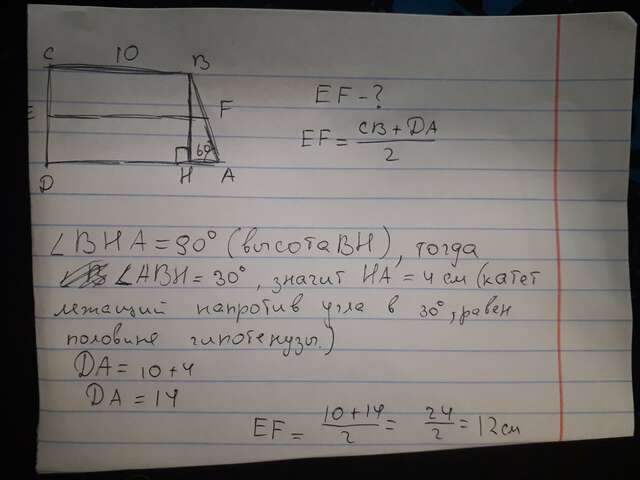 C 10 B
E F
60°
D H A
EF - ?
EF = CB + DA / 2
∠BHA = 90° (высота BH), тогда
∠ABH = 30°, значит HA = 4 см (катет
лежащий напротив угла в 30°, равен
половине гипотенузы.)
DA = 10 + 4
DA = 14
EF = 10 + 14 / 2 = 24 / 2 = 12 см